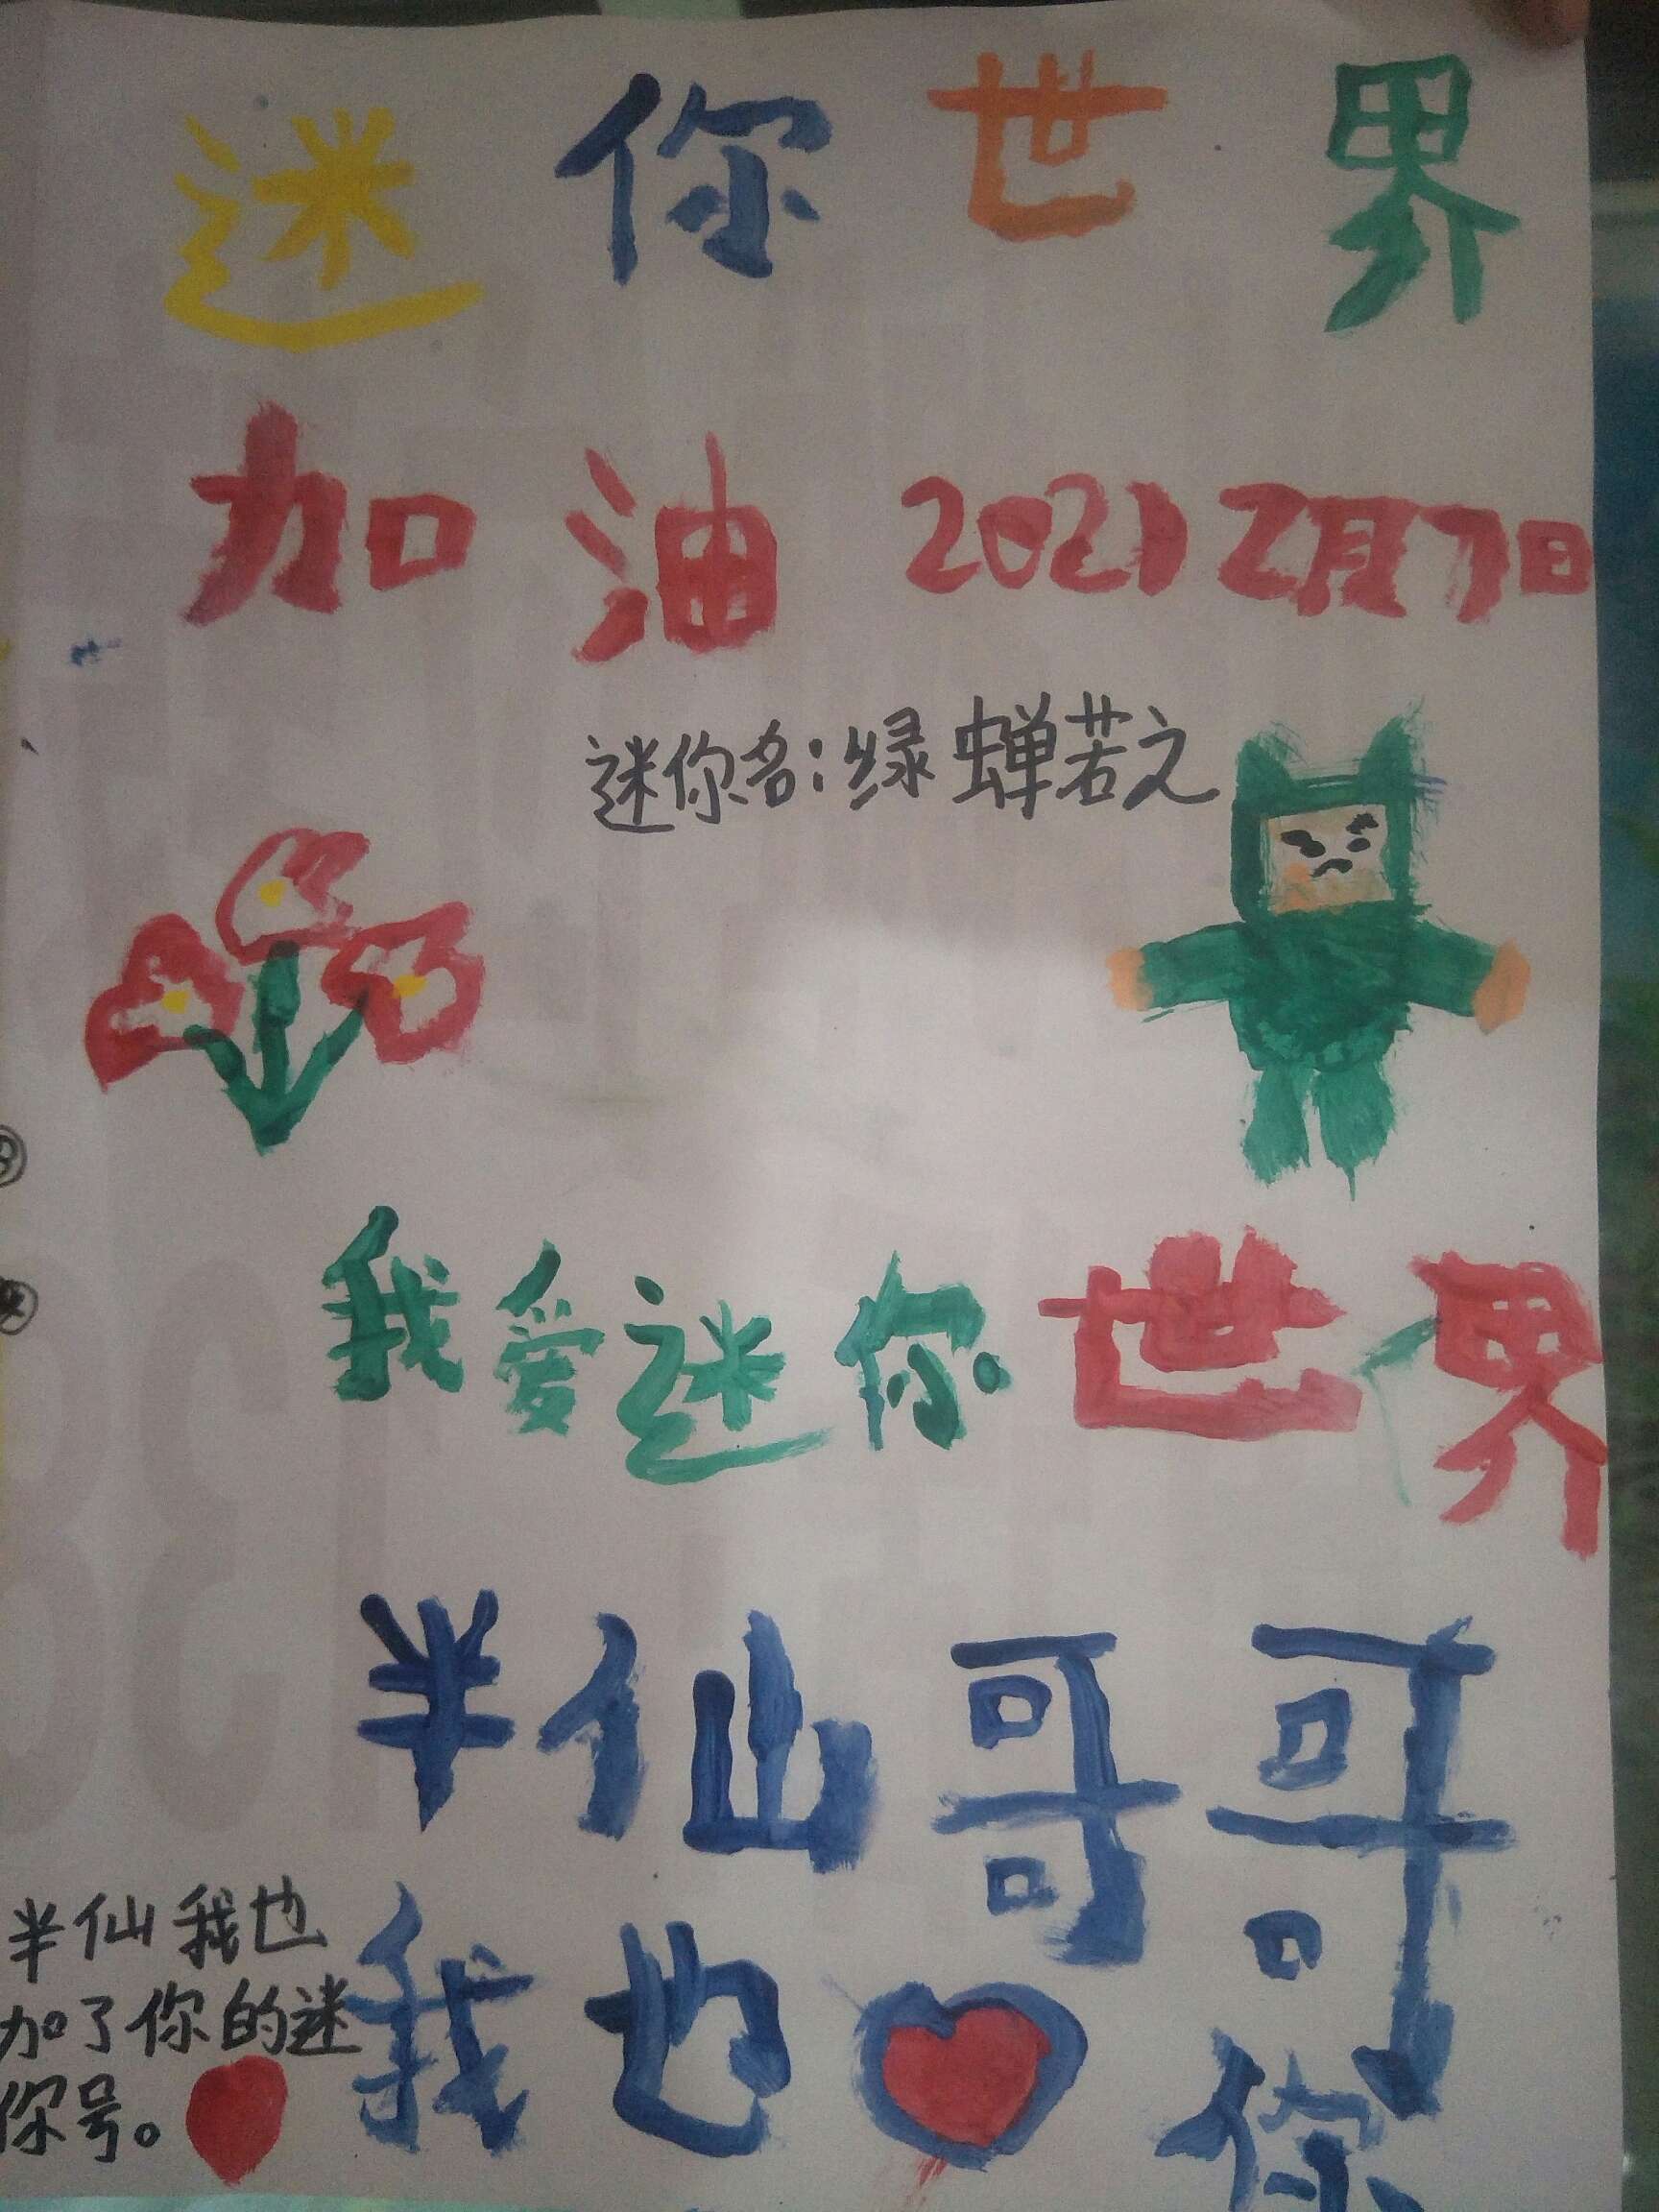 迷你世界
加油 2021 2月7日
迷你名:绿蝉若之
我爱迷你世界
半仙哥哥
我也❤你
半仙我也
加了你的迷
你号。